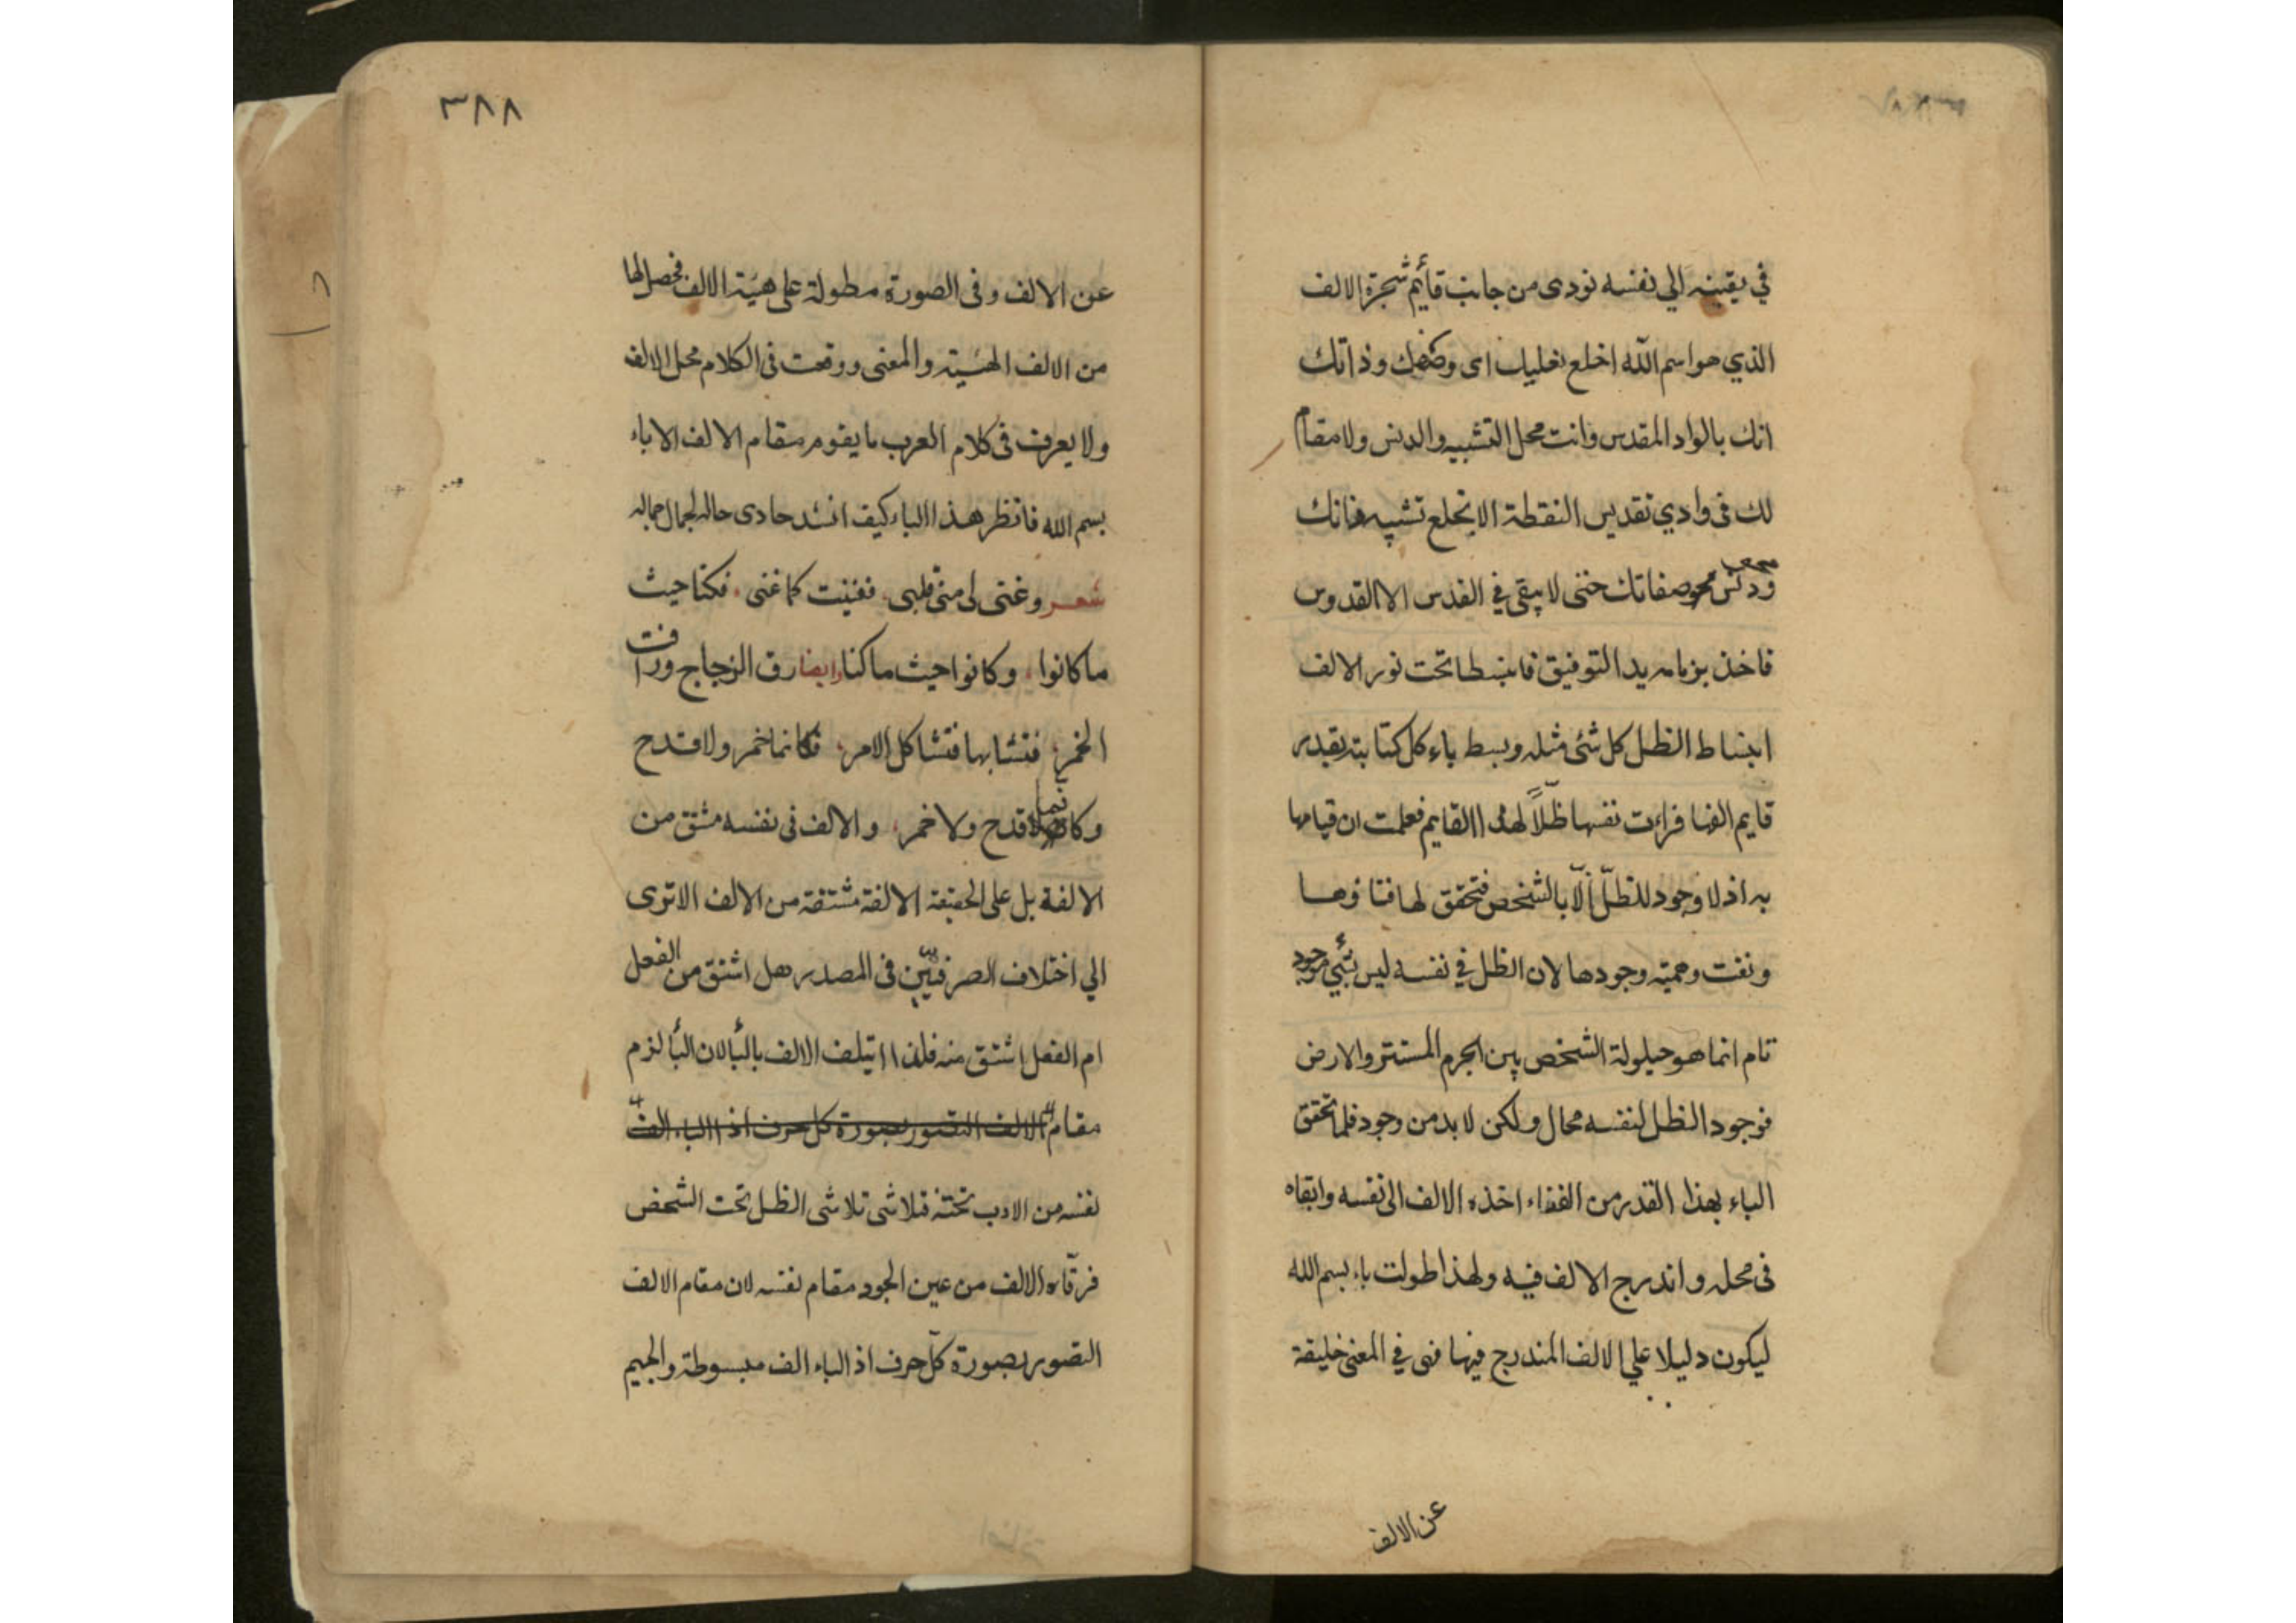 في يقينه الي نفسه نودى من جانب قائم شجرة الالف
الذي هو اسم الله اخلع نعليك اى وصفك وذاتك
انك بالواد المقدس وانت محل التشبيه والدنس ولا مقام
لك فى وادي تقديس النقطة الا بخلع تشبيه فانك
ودنس محو صفاتك حتى لا يبقي في القدس الا القدوس
فاخذ بزمامه يد التوفيق فانبسط تحت نور الالف
انبساط الظل كل شئ مثله وبسط باء كل كتابته بقدر
قايم الفها فرات نفسها ظلاً لهذا القايم فعلمت ان قيامها
به اذ لا وجود للظلّ الّا بالشخص فتحقق لها فناؤها
ونفت وهمية وجودها لان الظل في نفسه ليس بشئ موجود
تام انما هو حيلولة الشخص بين الجرم المستتر والارض
فوجود الظل لنفسه محال ولكن لا بد من وجود فلما تحقق
الباء بهذا القدر من الفناء اخذه الالف الى نفسه وابقاه
فى محله واندرج الالف فيه ولهذا طولت باء بسم الله
ليكون دليلا علي الالف المندرج فيها فهى في المعنى خليفة
عن الالف
٣٨٨
عن الالف وفى الصورة مطولة على هيئة الالف فحصل لها
من الالف الهيئة والمعنى ووقعت فى الكلام محل الالف
ولا يعرف فى كلام العرب ما يقوم مقام الالف الا باء
بسم الله فانظر هذا الباء كيف انشد حادى حاله لجمال جماله
شعر وغنى لى منى قلبى فغنيت كما غنى فكنا حيث
ما كانوا وكانوا حيث ما كنا وايضا رق الزجاج وراقت
الخمر فتشابها فتشاكل الامر فكانما خمر ولا قدح
وكانما قدح ولا خمر والالف فى نفسه مشتق من
الالفة بل على الحقيقة الالفة مشتقة من الالف الا ترى
الي اختلاف الصرفيّين فى المصدر هل اشتق من الفعل
ام الفعل اشتق منه فلذا ايتلف الالف بالبأ لان البأ لزم
مقام الالف التصور بصورة كل حرف اذ الباء الف
نفسه من الادب تحته فتلاشى تلاشى الظل تحت الشخص
فرقّاه الالف من عين الجود مقام نفسه لان مقام الالف
التصور بصورة كلّ حرف اذ الباء الف مبسوطة والجيم